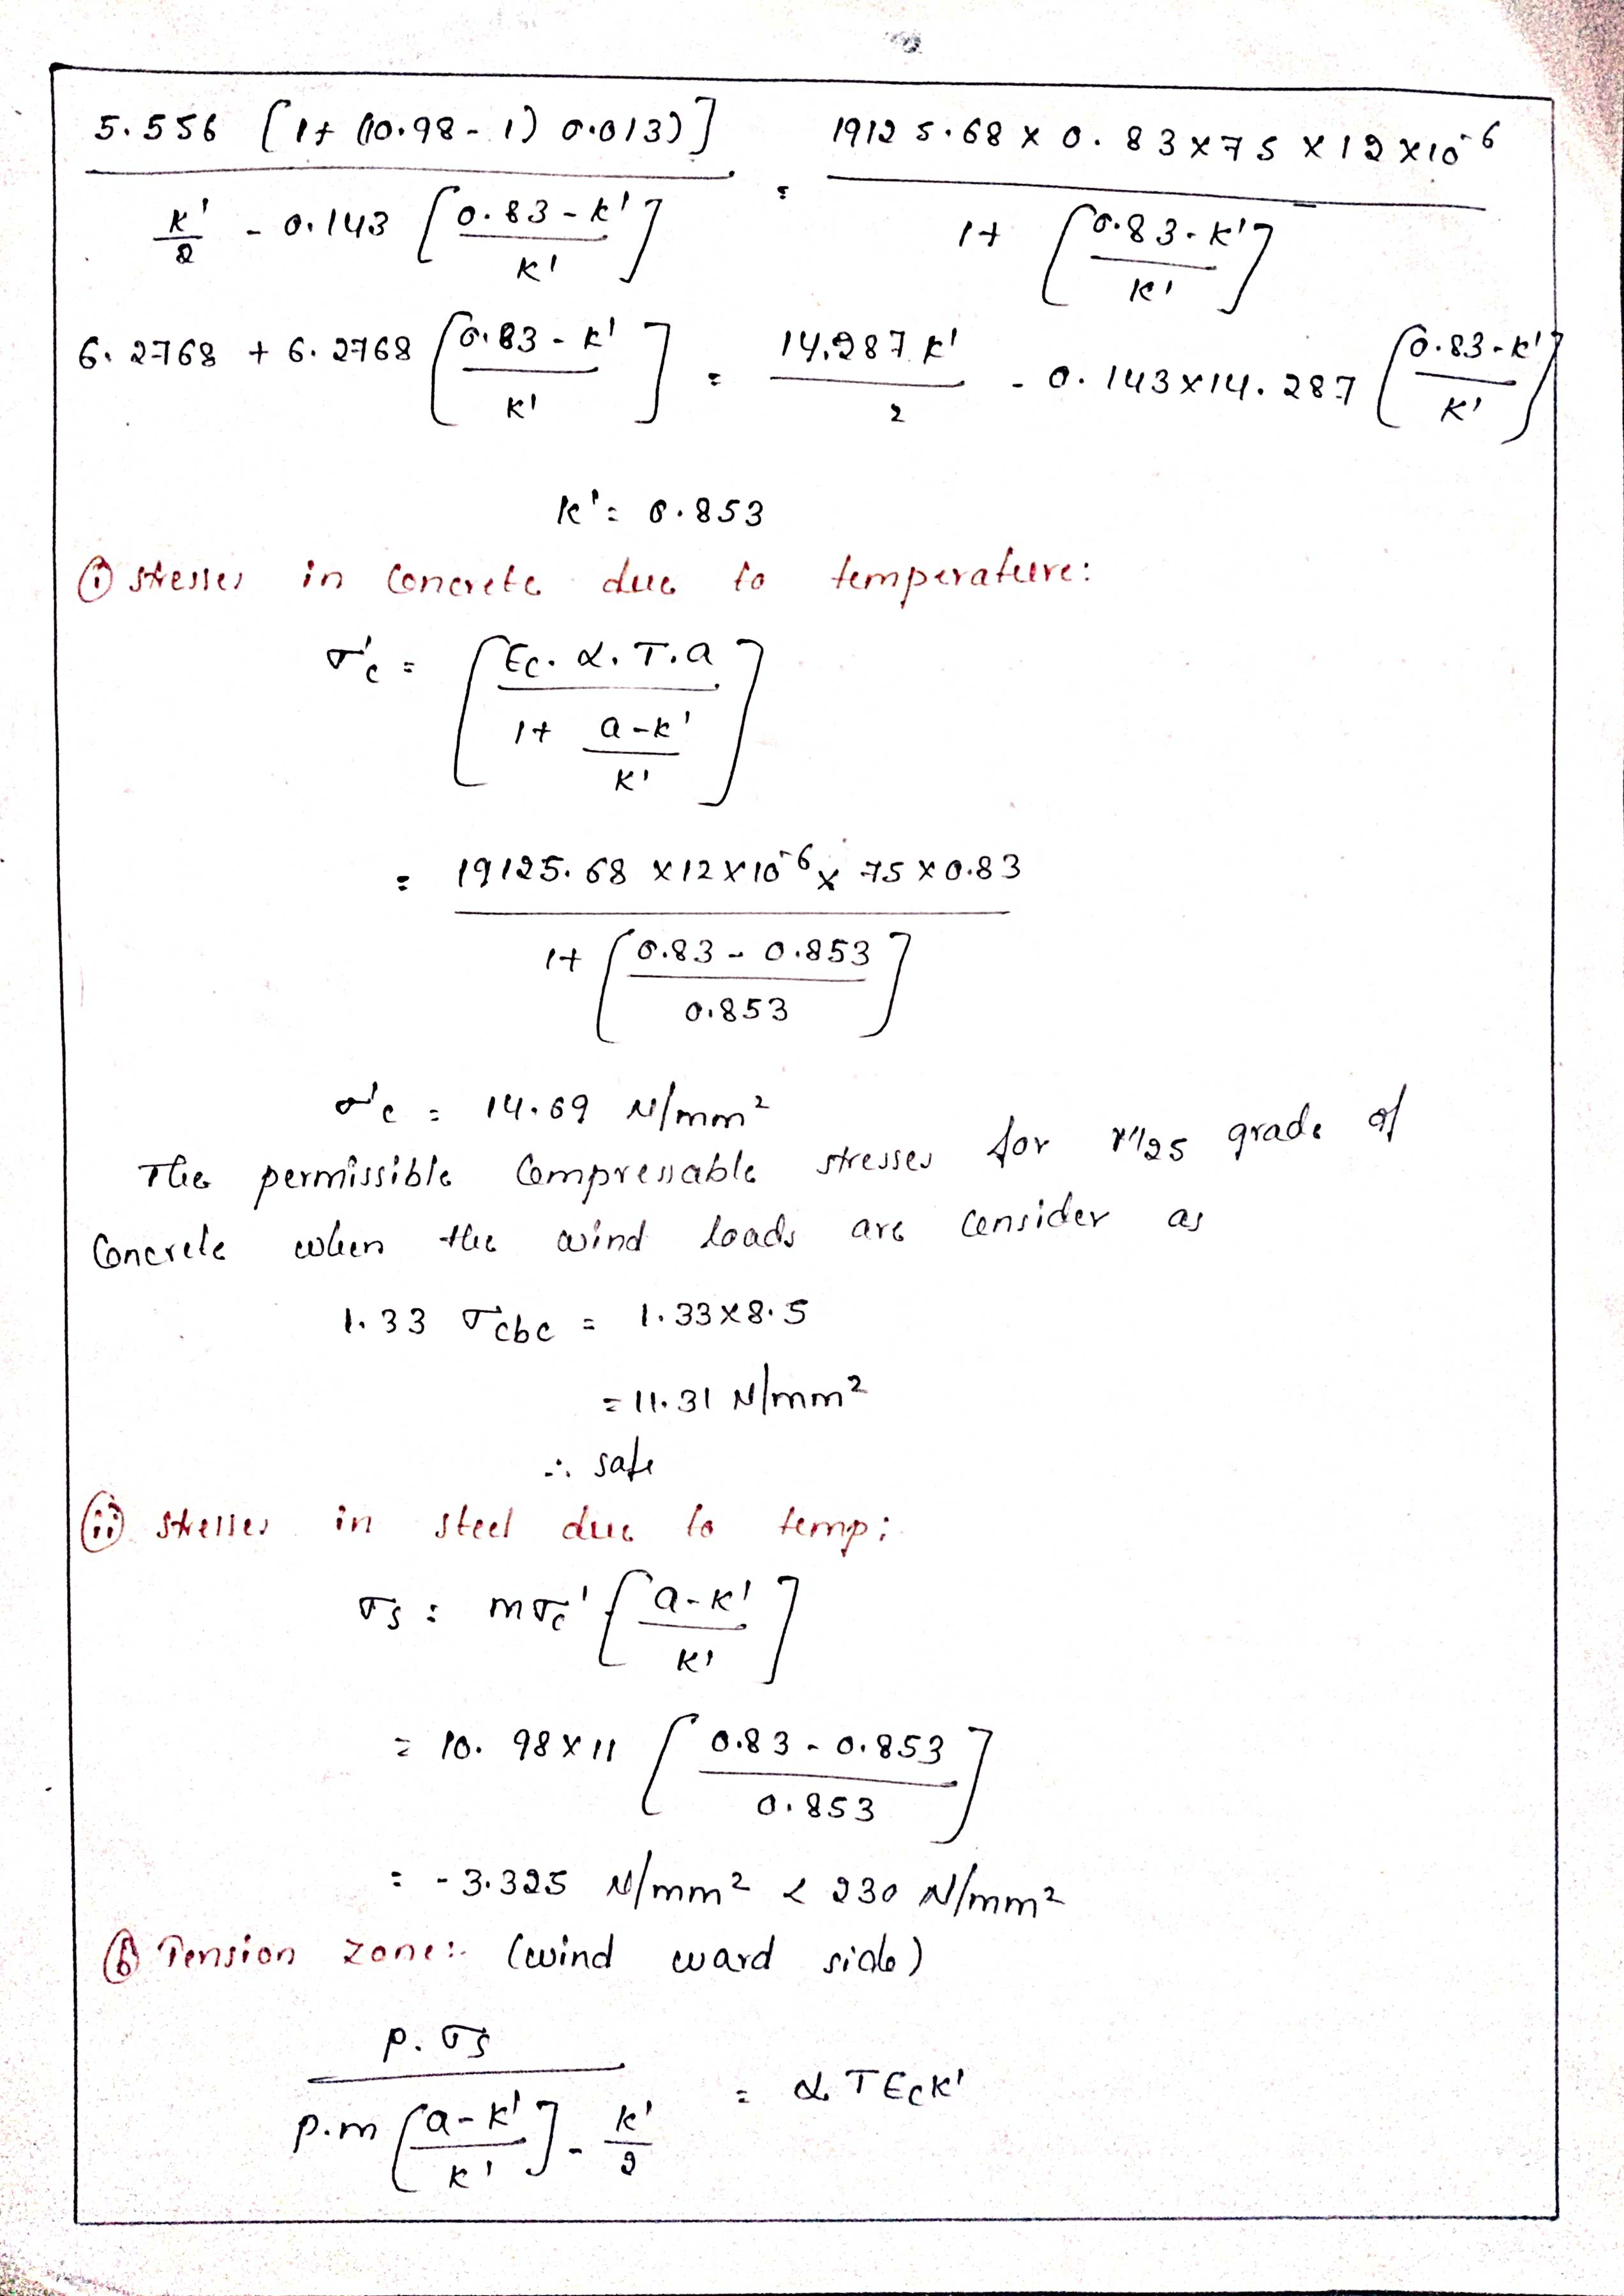 5.556 [1+ (10.98 - 1) 0.013)] / k'/2 - 0.143 [0.83 - k' / k'] = 19125.68 x 0.83 x 75 x 12 x 10^-6 / 1+ [0.83 - k' / k']
6.2768 + 6.2768 [0.83 - k' / k'] = 14.287 k' / 2 - 0.143 x 14.287 [0.83 - k' / k']
k' = 0.853
(i) stresses in Concrete due to temperature:
σ'c = [Ec. α. T. a / 1+ a - k' / k']
= 19125.68 x 12 x 10^-6 x 75 x 0.83 / 1+ [0.83 - 0.853 / 0.853]
σ'c = 14.69 N/mm²
The permissible Compressable stresses for M25 grade of
Concrete when the wind loads are consider as
1.33 σcbc = 1.33 x 8.5
= 11.31 N/mm²
∴ safe
(ii) stresses in steel due to temp:
σs = mσc' [a - k' / k']
= 10.98 x 11 [0.83 - 0.853 / 0.853]
= -3.325 N/mm² < 230 N/mm²
(b) Tension zone:- (wind ward side)
p. σs / p.m [a - k' / k'] - k'/2 = α T Ec k'